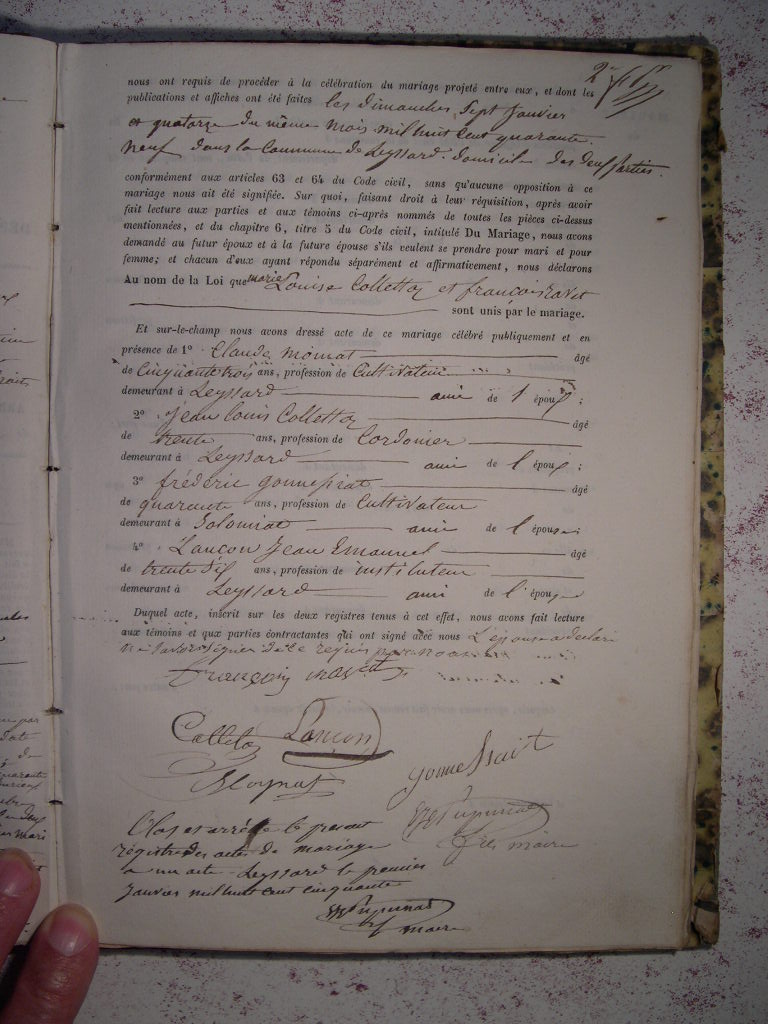 nous ont requis de procéder à la célébration du mariage projeté entre eux, et dont les
publications et affiches ont été faites les dimanches sept janvier
et quatorze du même mois mil huit cent quarante
neuf dans la Commune de Leyssard. domicile des deux parties.
conformément aux articles 63 et 64 du Code civil, sans qu'aucune opposition à ce
mariage nous ait été signifiée. Sur quoi, faisant droit à leur réquisition, après avoir
fait lecture aux parties et aux témoins ci-après nommés de toutes les pièces ci-dessus
mentionnées, et du chapitre 6, titre 5 du Code civil, intitulé Du Mariage, nous avons
demandé au futur époux et à la future épouse s'ils veulent se prendre pour mari et pour
femme; et chacun d'eux ayant répondu séparément et affirmativement, nous déclarons
Au nom de la Loi que marie Louise Collettaz et françois
sont unis par le mariage.
Et sur-le-champ nous avons dressé acte de ce mariage célébré publiquement et en
présence de 1° Claude âgé
de Cinquante trois ans, profession de Cultivateur
demeurant à Leyssard ami de l'époux;
2° Jean louis Collettaz âgé
de trente ans, profession de Cordonier
demeurant à Leyssard ami de l'époux;
3° frédéric âgé
de quarante ans, profession de Cultivateur
demeurant à Solomiat ami de l'épouse;
4° Lançon Jean Emanuel âgé
de trente six ans, profession de instituteur
demeurant à Leyssard ami de l'épouse
Duquel acte, inscrit sur les deux registres tenus à cet effet, nous avons fait lecture
aux témoins et aux parties contractantes qui ont signé avec nous L'épouse a déclaré
ne savoir signer de ce requis par nous
françois
Colletaz Lançon
maire
Clos et arrêté le présent
registre des actes de mariage
a un acte Leyssard le premier
Janvier mil huit cent cinquante
maire